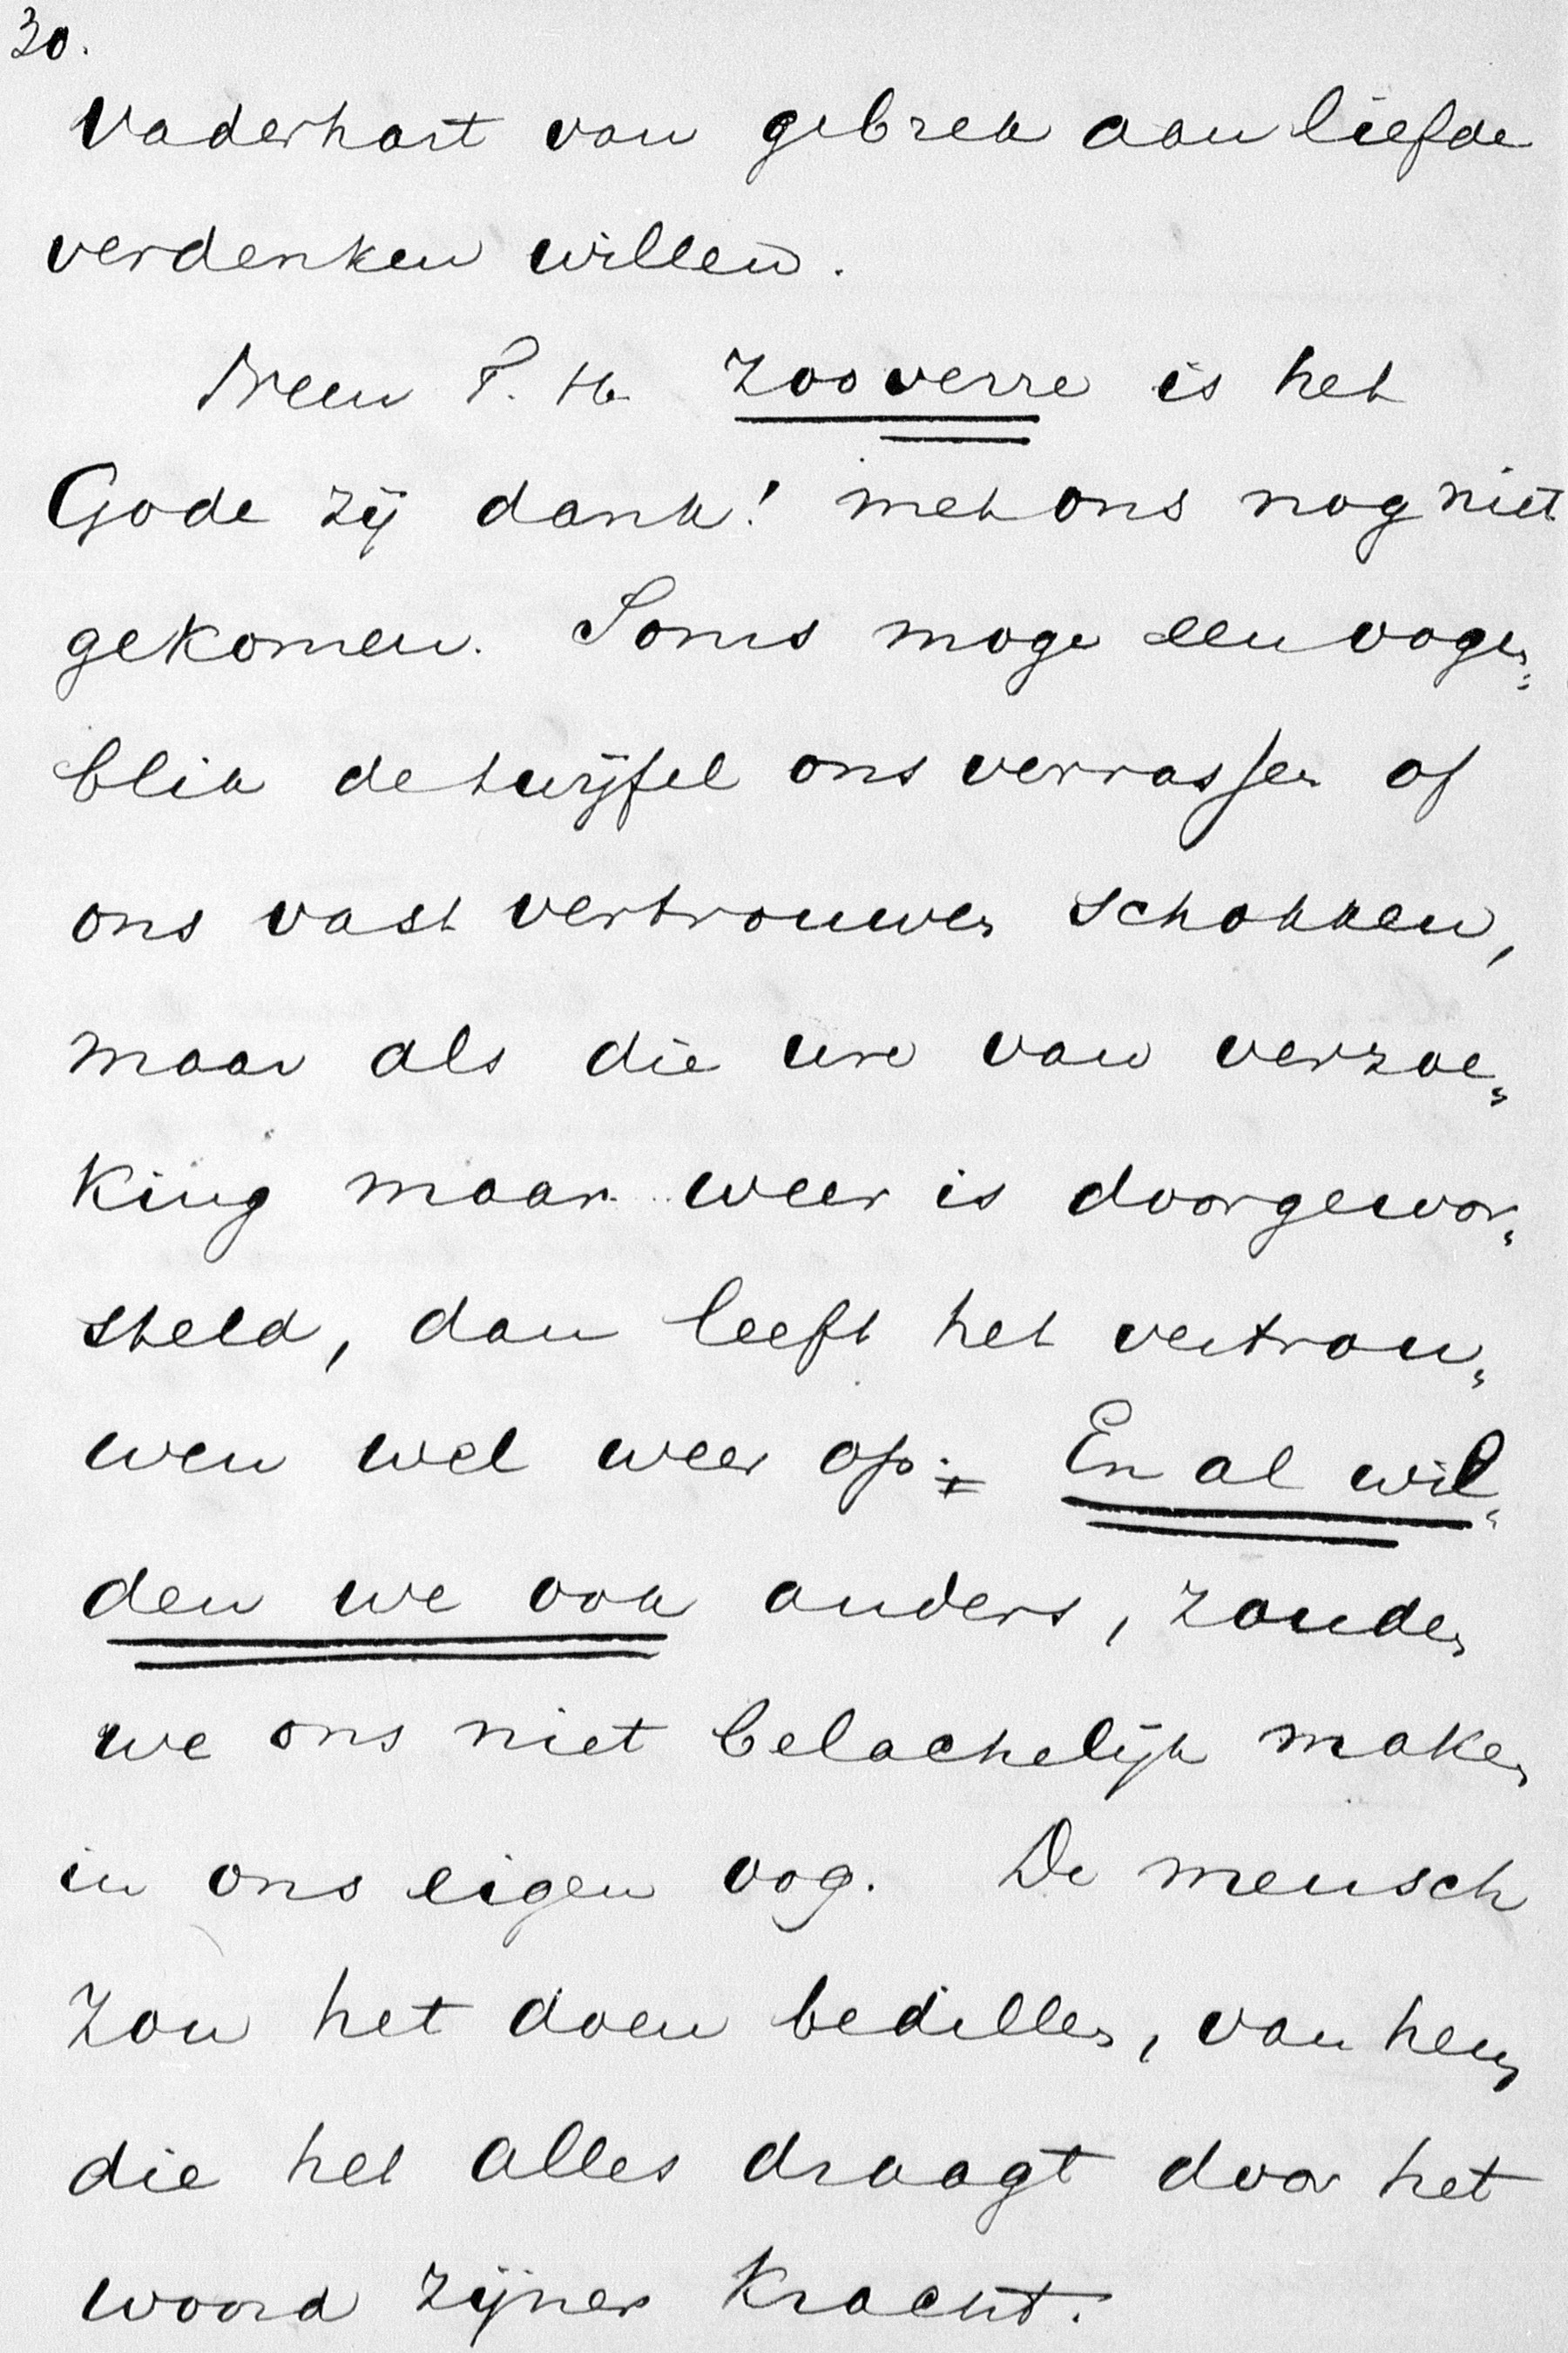 30.
Vaderhart van gebrek aan liefde
verdenken willen.
Neen T. H. zooverre is het
Gode zij dank! met ons nog niet
gekomen. Soms moge een oogen„
blik de twijfel ons verrassen of
ons vast vertrouwen schokken,
maar als die ure van verzoe„
king maar weer is doorgewor„
steld, dan leeft het vertrou„
wen wel weer op. En al wil„
den we ook anders, zouden
we ons niet belachelijk maken
in ons eigen oog. De mensch
zou het doen bedillen, van hem
die het alles draagt door het
woord zijner kracht.